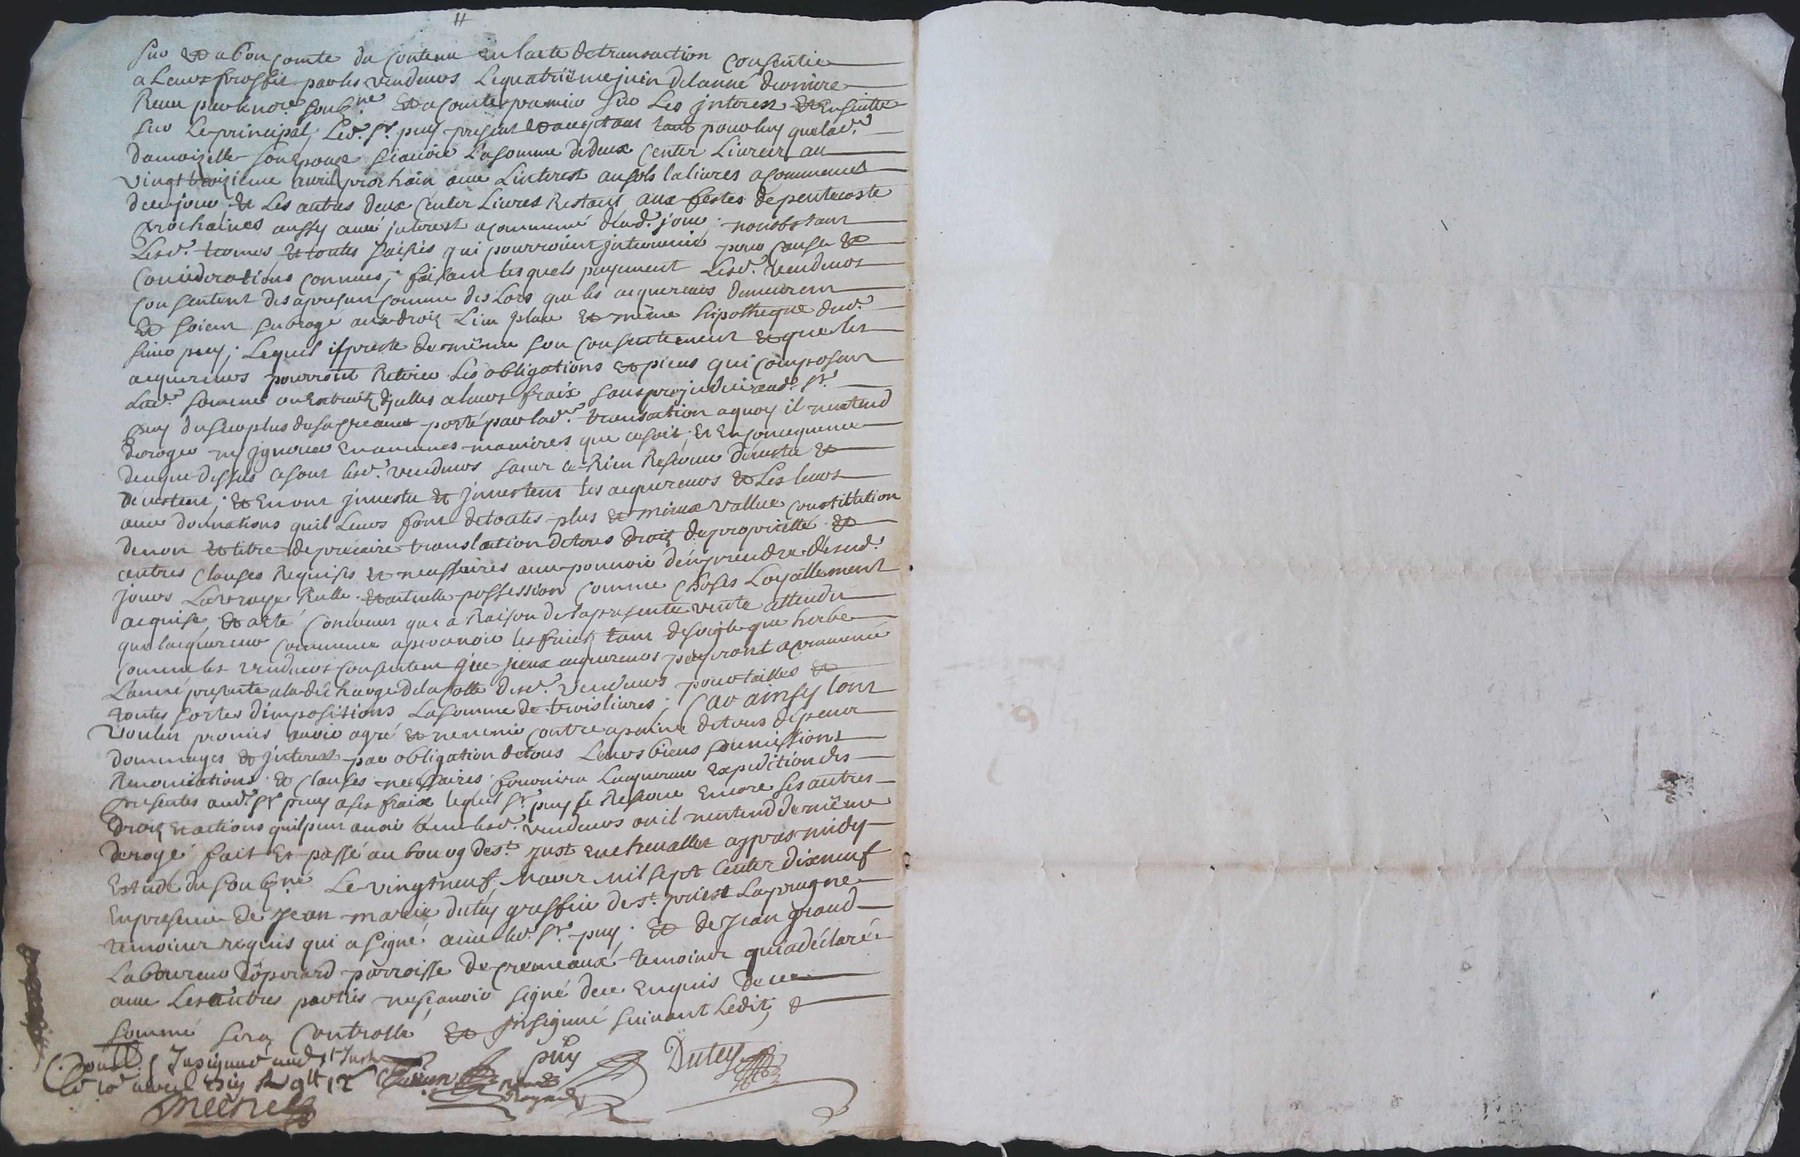 Sur & a bon comte du contenu en lacte de transaction consentie
a Leurs proffit par les vendeurs Le quatriême juin de lanné derniere
Receu par le nore. soubne. & a comte premier sur Les jnterest & Ensuitte
sur Le principal, Led. sr. puy present & acceptant tant pour luy que lad.
damoizelle son epouze scavoir La somme de deux Cents Livres au
vingt troizieme avril prochain avec L'interest au sols la livres a commencé
de ce jour & Les autres deux Cents Livres Restant aux festes de pentecoste
prochaines aussy avec jnterest a commencé dud. jour, nonobstant
Lesd. termes et toutes saisies qui pourroient jntervenir pour cause &
Considerations connues, faisant lesquels payement Lesd. vendeurs
consentent des apresent comme des Lors que les acquereurs demeurent
& soient subrogé aux droit Lieu place & même hipotheque dud.
sieur puy, Lequel jl preste de même son consentement & que les
acquereurs pourront Retirer Les obligations & pieces qui composent
Lad. somme ou Extraits djcelles a leurs fraix sans prejudice aud. sr.
puy du surplus de sa creance porté par lad. transaction a quoy il nentend
deroger ny jgnover En aucunes manieres que ce soit, Et En consequence
de ce que dessus ce sont lesd. vendeurs sans ce Rien Reserver devestu &
devestent, & En ont jnvestu & jnvestent les acquereurs & Les leurs
avec donnations quil Leurs font de toutes plus & mieux vallue constitution
de nom & titre de precaire translation de tous droit de proprietté &
autres Clauses Requises & necessaires avec pouvoir den prendre desud.
jours La vraye Relle & actuelle possession comme choses Loyallement
acquise, & a eté convenu qua Raison de la presente vente attendu
que lacquereur commence a percevoir les fruits tant de soigle que herbe
comme les vendeurs consentent que jceux acquereurs payeront a commencé
L'anné presente a la decharge de la Cotte desd. vendeurs pour tailles &
toutes sortes d'impositions La somme de trois livres, Car ainsy Lont
voulu promis avoir agré & ne venir contre a peine de tous depens
dommages & jnterest par obligation de tous Leurs biens soumissions
Renonciations & Clauses necessaires, fournira Lacquereur Expedition des
presentes aud. sr. puy a ses fraix lequel sr. puy se Reserve Encore ses autres
droit & actions quil peut avoir contre lesd. vendeurs ou il nentend de même
derogé fait Et passé au bourg de st. just en chevallet apres midy
Estude du soubsigné Le vingt neuf Mars mil sept Cents dixneuf
En presence de Jean marie dutey greffier de st. priest La prugne
temoins requis qui a signé avec led. sr. puy. & de Jean giraud
Laboureur d'operard parroisse de cremeaux temoins qui a déclaré
avec Les autres parties ne scavoir signé de ce Enquis de ce
sommé sera Controllé & jnsignué suivant Ledit,
puy
Dutey
Controllé & Jnsignué aud. st. Just